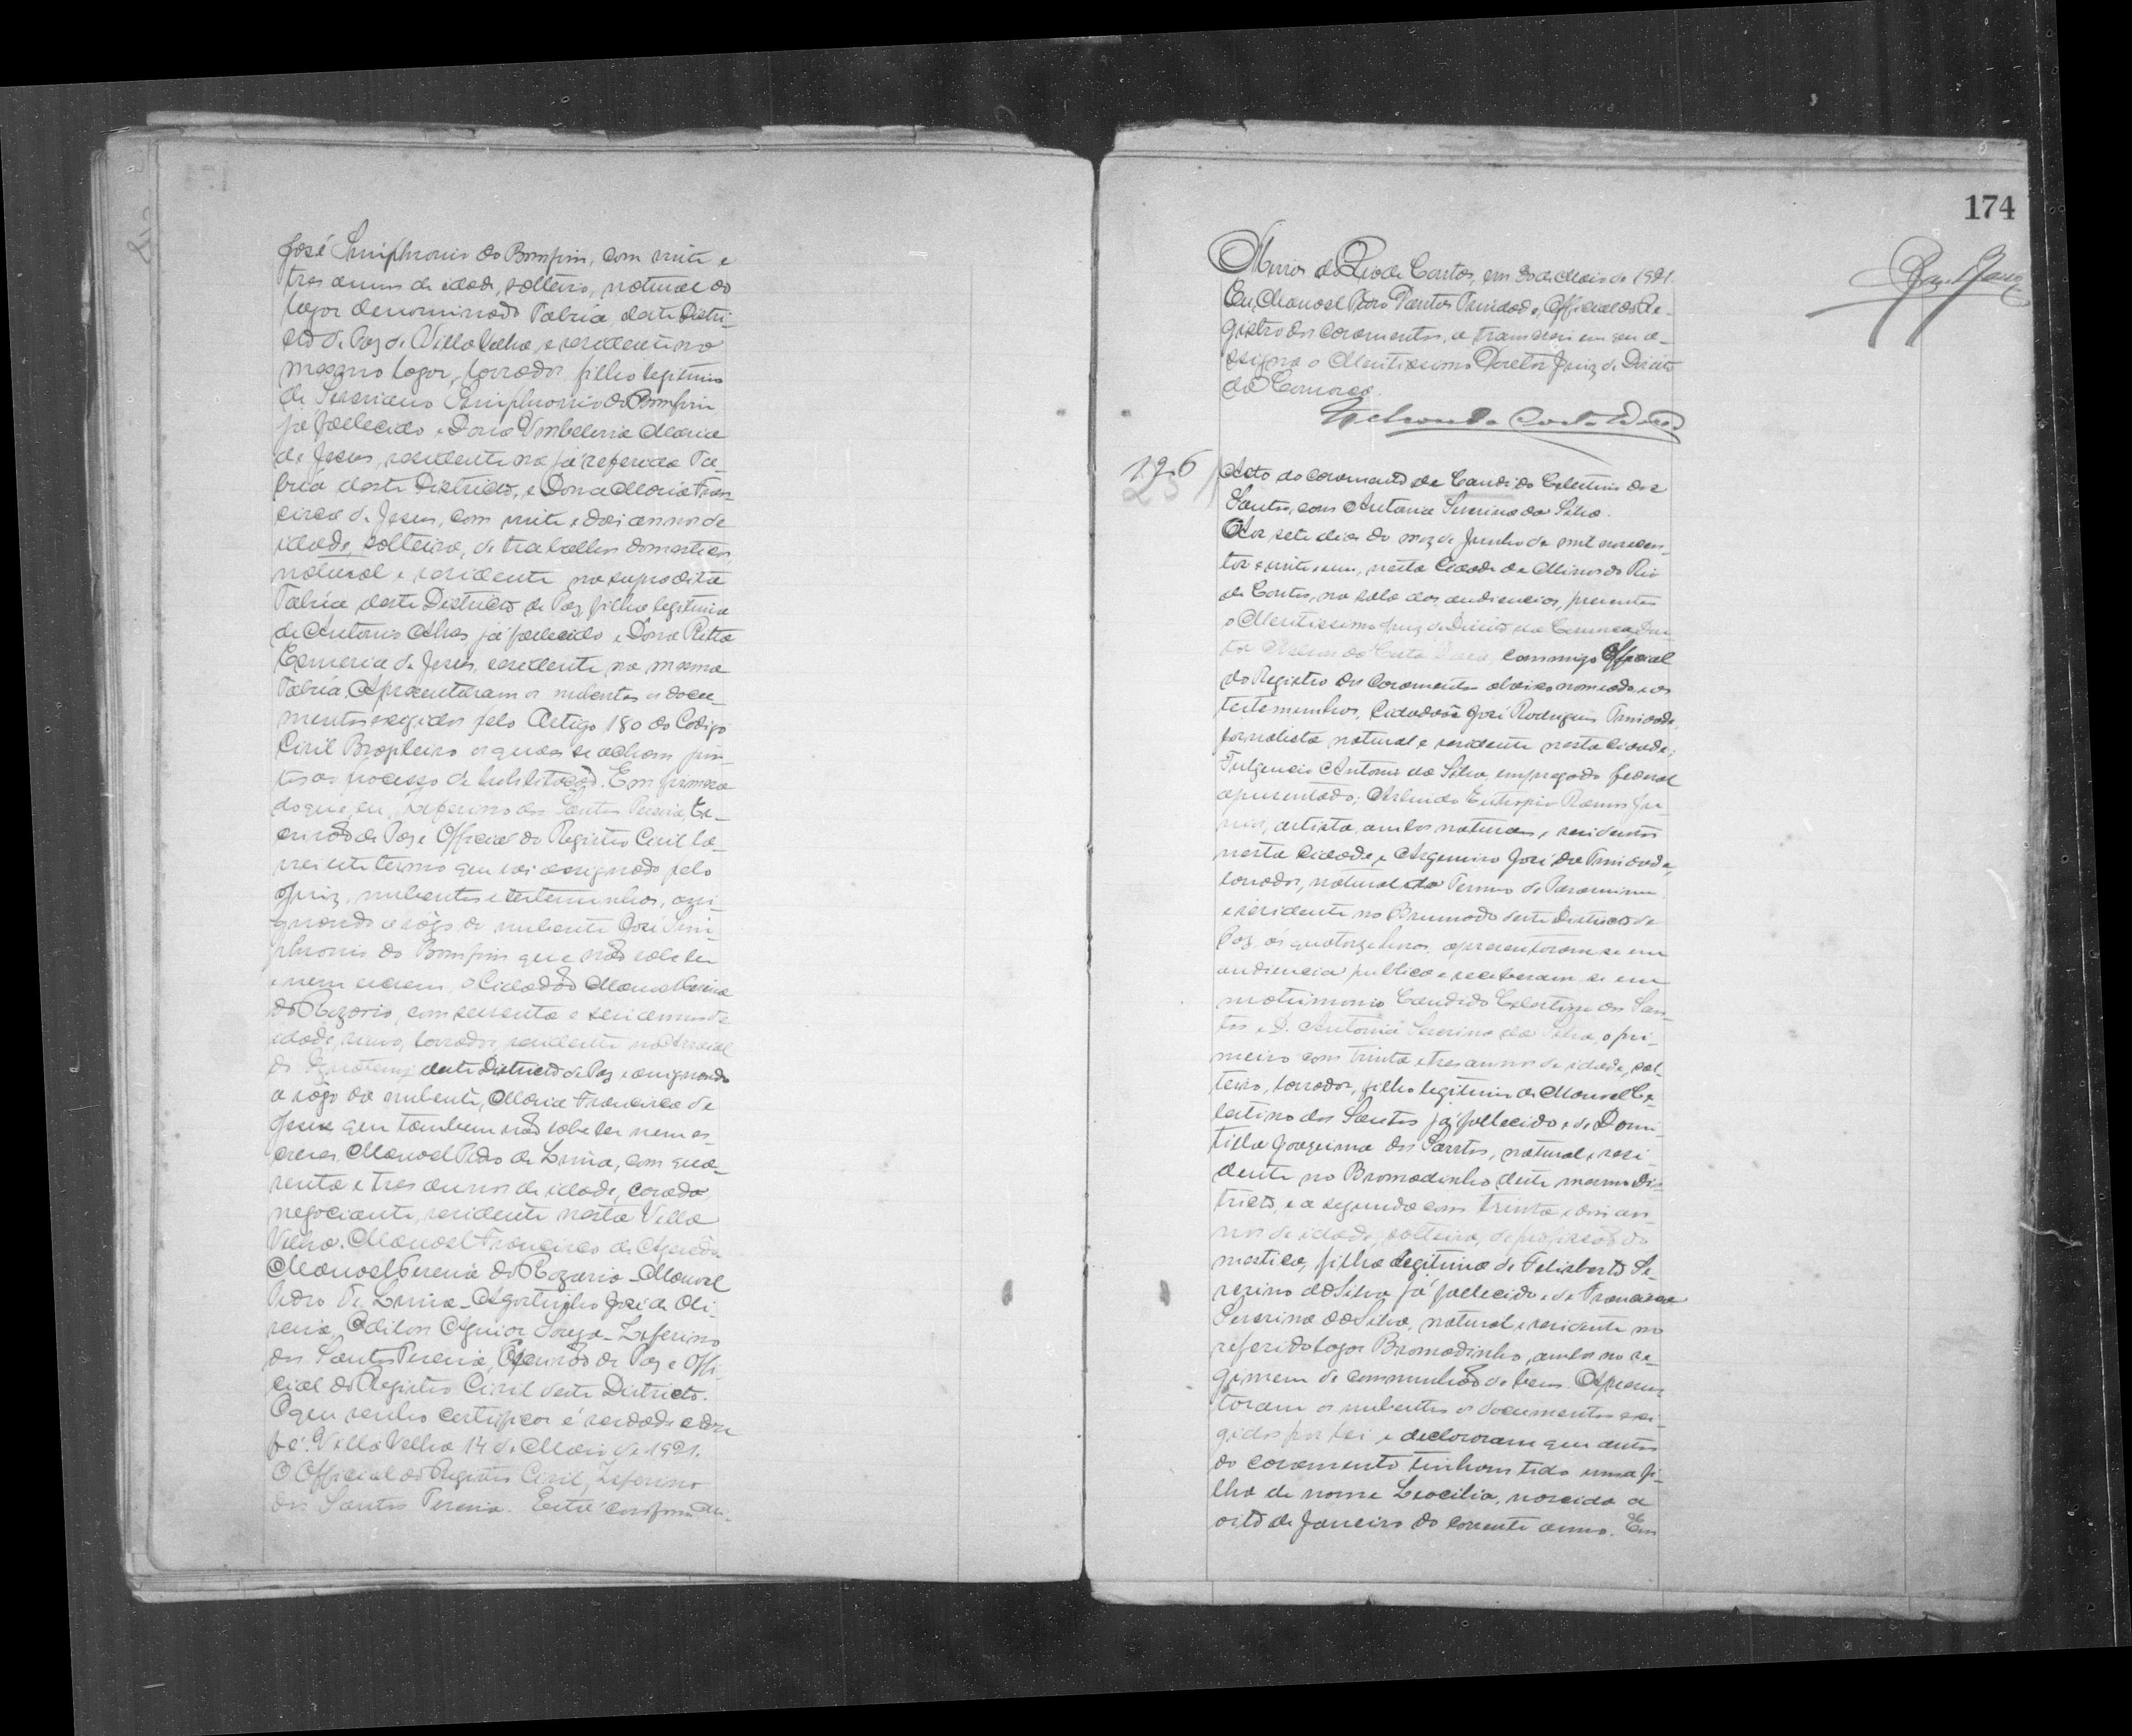 José Simphronio do Bomfim, com vinte e
tres annos de idade, solteiro, natural do
logar denominado Tabúa, deste Distri-
cto de Paz de Villa Velha, e residente no
mesmo logar, lavrador, filho legitimo
de Simphronio do Bomfim
já fallecido e Dona Umbelina Maria
de Jesus, residente na já referida Ta-
búa deste Districto, e Dona Maria Fran
cisca de Jesus, com vinte e dois annos de
idade, solteira, de trabalhos domesticos,
natural e residente na supradita
Tabúa deste Districto de Paz, filha legitima
de Antonio Alves já fallecido e Dona Ritta
de Jesus, residente na mesma
Tabúa. Apresentaram os nubentes os docu-
mentos exigidos pelo Artigo 180 do Codigo
Civil Brazileiro os quaes se acham jun-
tos ao processo de habilitação. Em firmeza
do que eu, Zeferino dos Santos Pereira, Es-
crivão de Paz e Official do Registro Civil la-
vrei este termo que vai assignado pelo
Juiz, nubentes e testemunhas, assi-
gnando a rôgo do nubente José Sim-
phronio do Bomfim que não sabe ler
e nem escrever, o Cidadão Manoel Pereira
do Rozario, com sessenta e seis annos de
idade, lavrador, residente no Arraial
do deste Districto de Paz e assignando
a rôgo da nubente, Maria Francisca de
Jesus que tambem não sabe ler nem es-
crever, Manoel Pedro de Lima, com qua-
renta e tres annos de idade, casado
negociante, residente nesta Villa
Velha. Manoel Francisco de Azevedo
Manoel Pereira do Rozario - Manoel
Pedro de Lima - Agostinho José de Oli-
veira, Odilon Aguiar Souza - Zeferino
dos Santos Pereira, Escrivão de Paz e Offi-
cial do Registro Civil deste Districto.
O que venho certificar é verdade e dou
fé. Villa Velha 14 de Maio de 1921.
O Official do Registro Civil, Zeferino
dos Santos Pereira. Está conforme.
174
Minas do Rio de Contas, em 20 de Maio de 1921.
Eu, Manoel Pedro Dantas Trindade, Official do Re-
gistro dos Casamentos, a transcrevi em que a-
ssigna o Meritissimo Doutor Juiz de Direito
da Comarca.
126
Acto do casamento de Candido Celestino dos
Santos, com Antonia Severina da Silva.
Aos sete dias do mez de Junho de mil novecen-
tos e vinte e um, nesta Cidade de Minas do Rio
de Contas, na sala das audiencias, presentes
o Meritissimo Juiz de Direito da Comarca Dou-
tor da Costa commigo Official
do Registro dos Casamentos abaixo nomeado, e as
testemunhas, Cidadãos José Rodrigues Trindade,
jornalista natural e residente nesta Cidade;
Fulgencio Antonio da Silva, empregado federal
aposentado; Arlindo Eutropio Ramos Ju-
nior, artista, ambos naturaes e residentes
nesta Cidade, e Argemiro José da Trindade,
lavrador, natural do Termo de Paramirim
e residente no Brumado deste Districto de
Paz, ás quatorze horas, apresentaram-se em
audiencia publica e receberam-se em
matrimonio Candido Celestino dos San-
tos e D. Antonia Severina da Silva, o pri-
meiro com trinta e tres annos de idade, sol-
teiro, lavrador, filho legitimo de Manoel Ce-
lestino dos Santos já fallecido e de Domi-
tilla Joaquina dos Santos, natural e resi-
dente no Bromadinho deste mesmo Dis-
tricto, e a segunda com trinta e dois an-
nos de idade, solteira, de profissão do-
mestica, filha legitima de Felisberto Se-
verino da Silva já fallecido e de Francisca
Severina da Silva, natural e residente no
referido logar Bromadinho, ambos no re-
gimem de communhão de bens. Apresen-
taram os nubentes os documentos exi-
gidos por lei e declararam que antes
do casamento tinham tido uma fi-
lha de nome Leocilia, nascida a
oito de Janeiro do corrente anno. Em